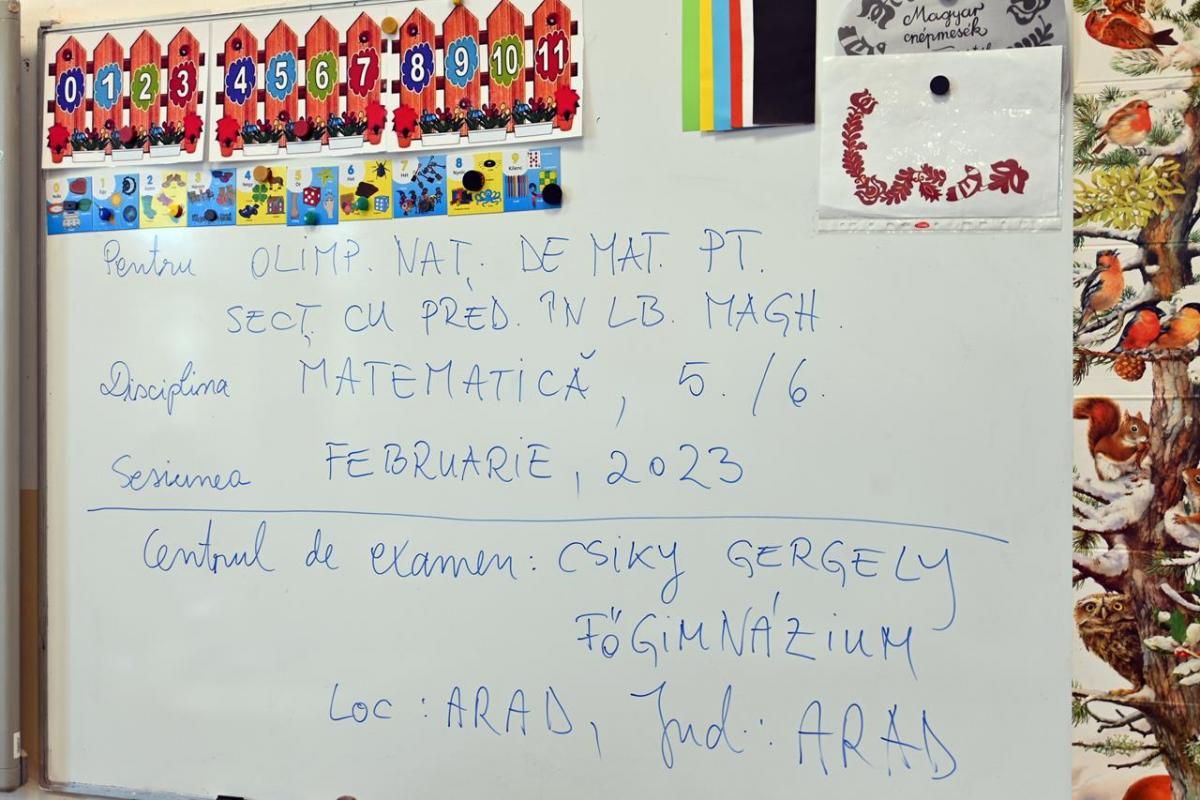 0 1 2 3 4 5 6 7 8 9 10 11
Magyar
népmesék
0 1 2 3 4 5 6 7 8 9
Öt Hat Hét Kilenc
Pentru OLIMP. NAȚ. DE MAT. PT.
SECȚ. CU PRED. ÎN LB. MAGH.
Disciplina MATEMATICĂ, 5. / 6.
Sesiunea FEBRUARIE, 2023
Centrul de examen: CSIKY GERGELY
FŐGIMNÁZIUM
Loc: ARAD, Jud.: ARAD